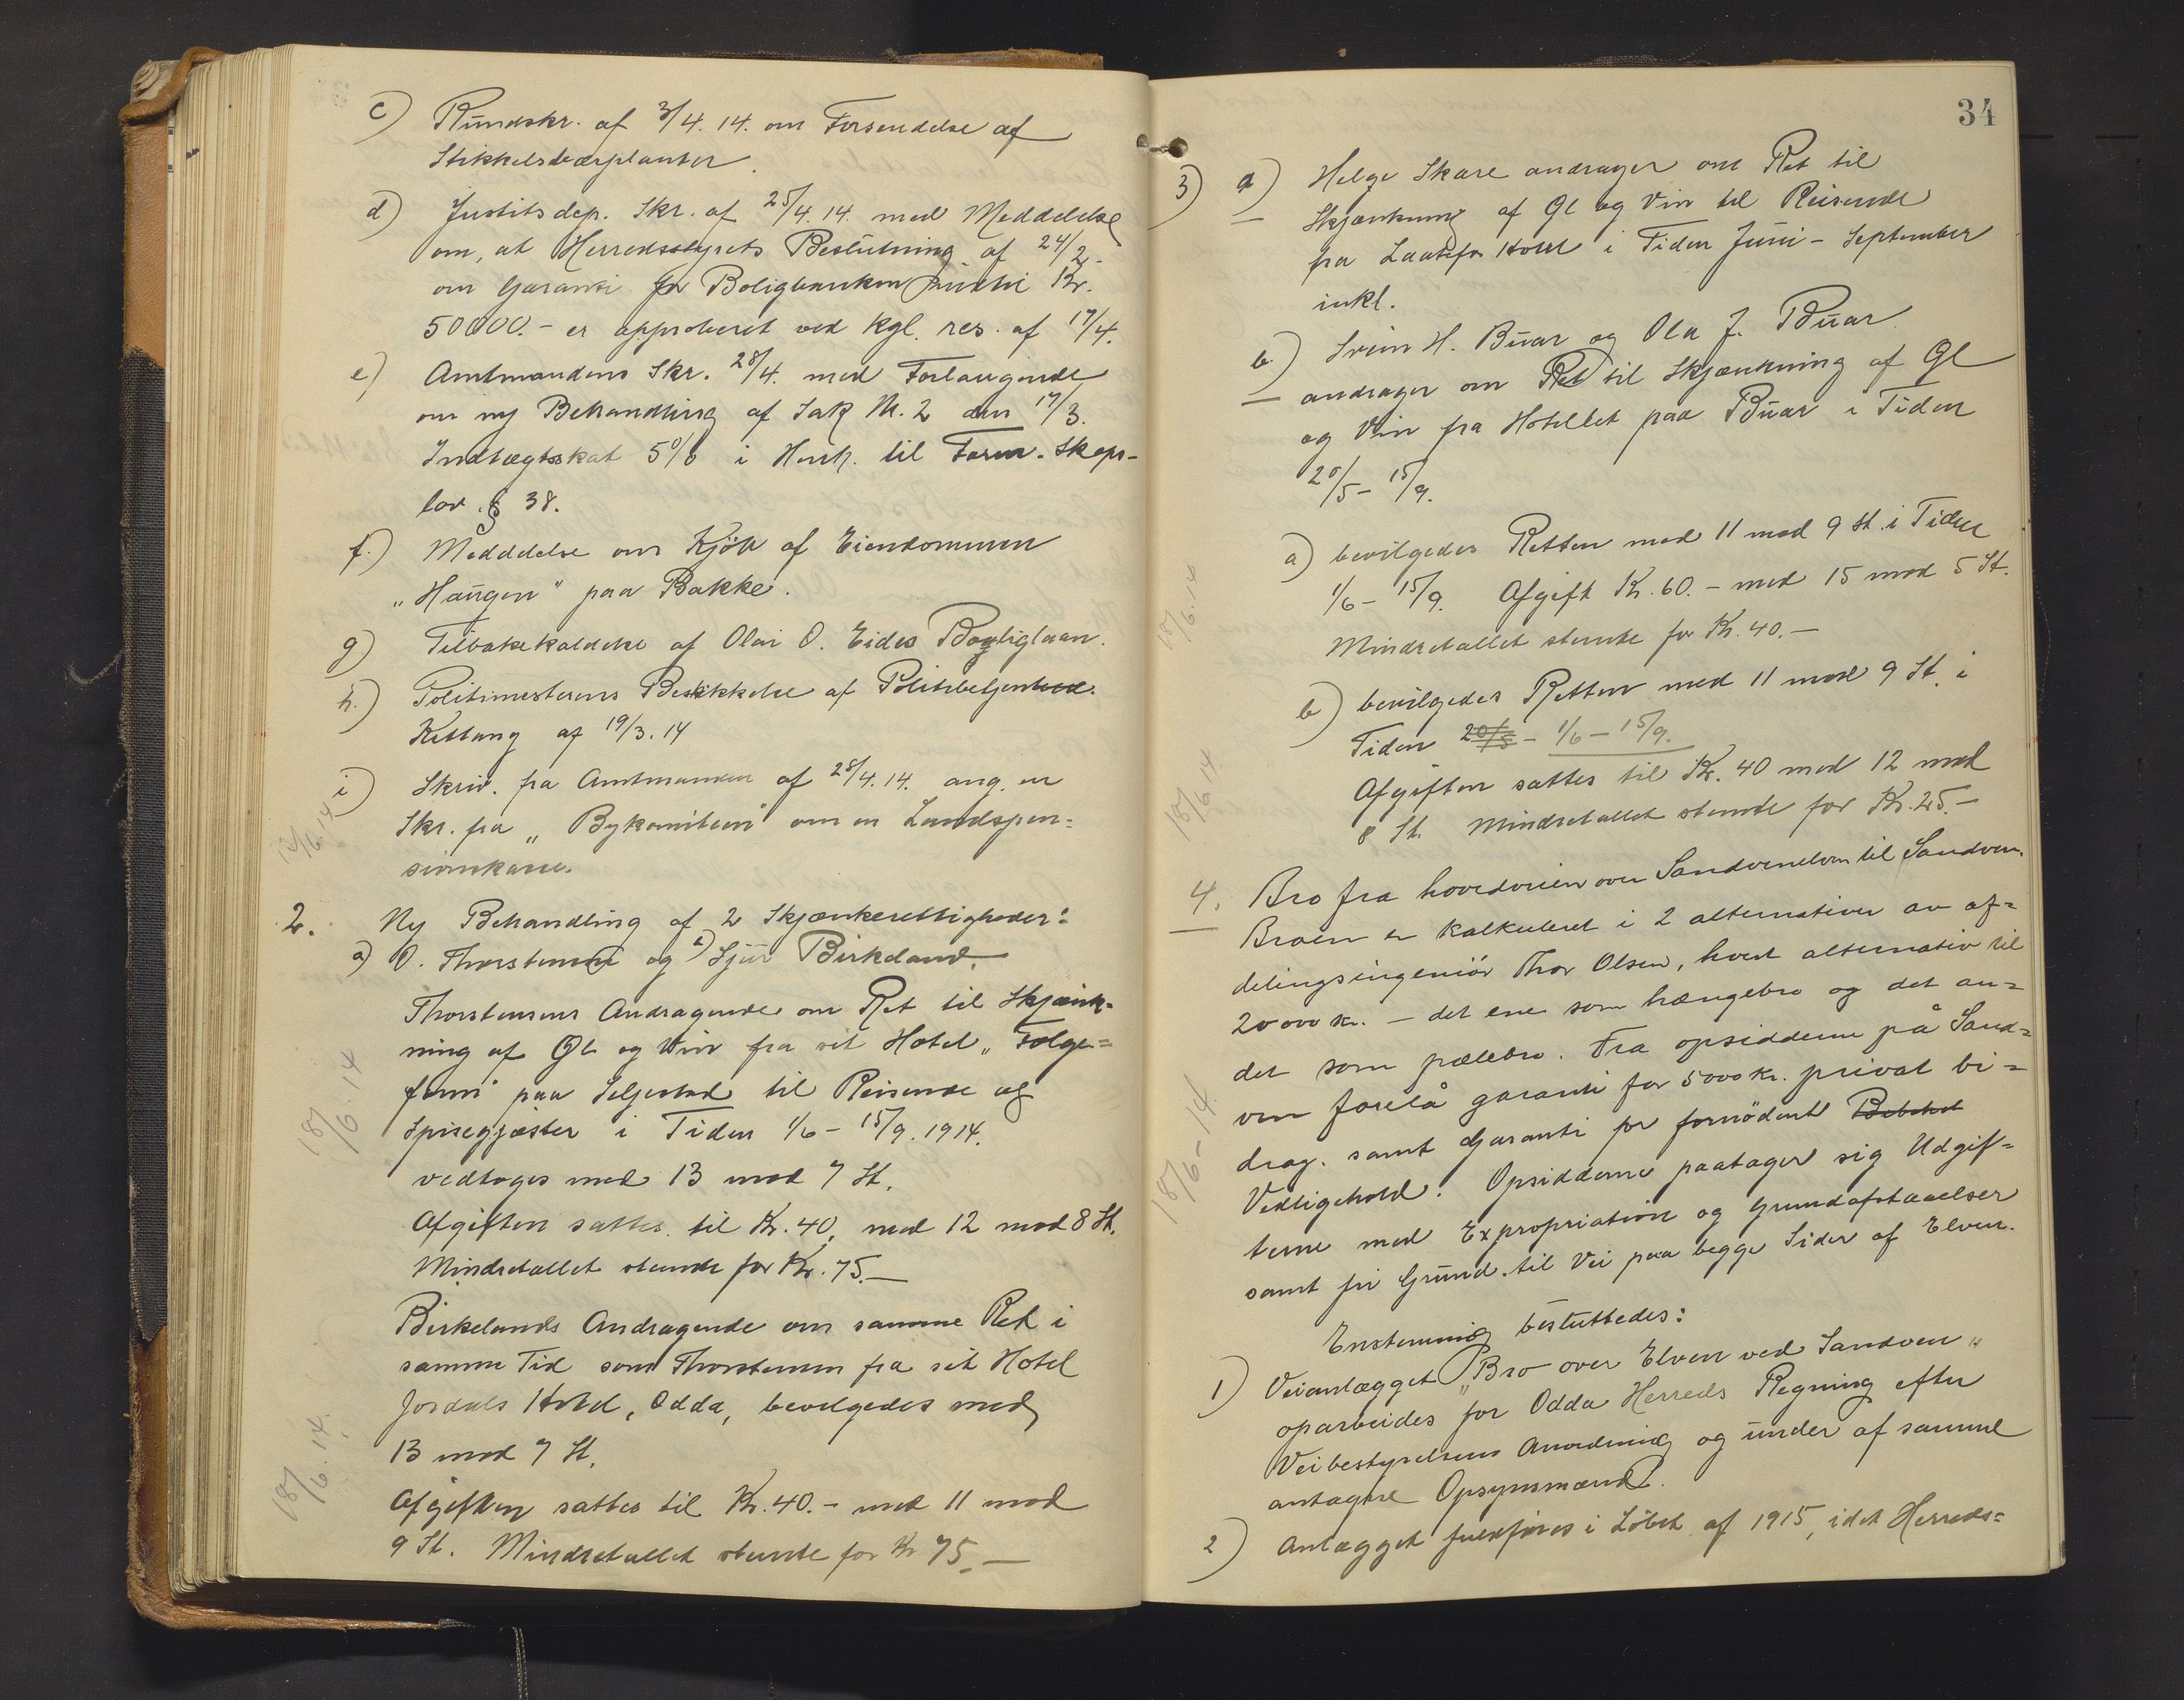 c) Rundskr. af 3/4. 14. om Forsendelse af
Stikkelsbærplanter.
d) Justitsdep. Skr. af 25/4. 14. med Meddelelse
om, at Herredsstyrets Beslutning af 24/2.
om Garanti for Boligbanken indtil Kr.
50000.- er approberet ved kgl. res. af 17/4.
e) Amtmandens Skr. 28/4. med Forlangende
om ny Behandling af Sak Nr. 2 den 17/3.
Indtægtsskat 5% i Henh. til Form. Skaps-
lov. § 38.
f.) Meddelelse om Kjøb af Eiendommen
„Haugen" paa Bakke.
g) Tilbakekaldelse af Olai O. Eides BoligLaan.
h.) Politimesterens Beskikkelse af Politibetjent
Kettang af 19/3. 14
i) Skriv. fra Amtmanden af 28/4. 14. ang. en
Skr. fra „Bykomiteen" om en Landspen=
sionskasse.
18/6. 14
2. Ny Behandling af 2 Skjænkerettigheder:
a) O. Thorstensen og b) Sjur Birkeland.
Thorstensens Andragende om Ret til Skjænk-
ning af Øl og Vin fra sit Hotel „Folge=
fonn" paa Seljestad til Reisende og
Spisegjæster i Tiden 1/6 - 15/9. 1914.
18/6. 14
vedtoges med 13 mod 7 St.
Afgiften sattes til Kr. 40, med 12 mod 8 St.
Mindretallet stemte for Kr. 75.-
Birkelands Andragende om samme Ret i
samme Tid som Thorstensen fra sit Hotel
Jordals Hotel, Odda, bevilgedes med
13 mod 7 St.
18/6. 14.
Afgiften sattes til Kr. 40.- med 11 mod
9 St. Mindretallet stemte for Kr 75.-
34
3) a) Helge Skare andrager om Ret til
Skjænkning af Øl og Vin til Reisende
fra Laatefos Hotel i Tiden Juni - September
inkl.
b.) Svein H. Buar og Ola J. Buar
andrager om Ret til Skjænkning af Øl
og Vin fra Hotellet paa Buar i Tiden
20/5 - 15/9.
a) bevilgedes Retten med 11 mod 9 St. i Tiden
1/6 - 15/9. Afgift Kr. 60.- med 15 mod 5 St.
18/6. 14
Mindretallet stemte for Kr. 40.-
b) bevilgedes Retten med 11 mod 9 St. i
Tiden 20/5 - 1/6 - 15/9.
18/6. 14
Afgiften sattes til Kr. 40 med 12 mod
8 St. Mindretallet stemte for Kr. 25.-
4. Bro fra hovedveien over Sandvenelven til Sandven.
Broen er kalkuleret i 2 alternativer av af=
delingsingeniör Thor Olsen, hvert alternativ til
20000 kr. - det ene som hængebro og det an=
det som pælebro. Fra opsidderne på Sand=
ven forelå garanti for 5000 kr. privat bi=
drag. samt Garanti for fornödent Bebehol
18/6 - 14.
Vedligehold. Opsidderne paatager sig Udgif=
terne med Expropriation og Grundafstaaelser
samt fri Grund til Vei paa begge Sider af Elven.
Enstemmig besluttedes:
1) Veianlægget „Bro over Elven ved Sandven"
oparbeides for Odda Herreds Regning efter
Veibestyrelsens Anordning og under af samme
antagne Opsynsmænd.
2) Anlægget fuldføres i Løbet af 1915, idet Herreds=